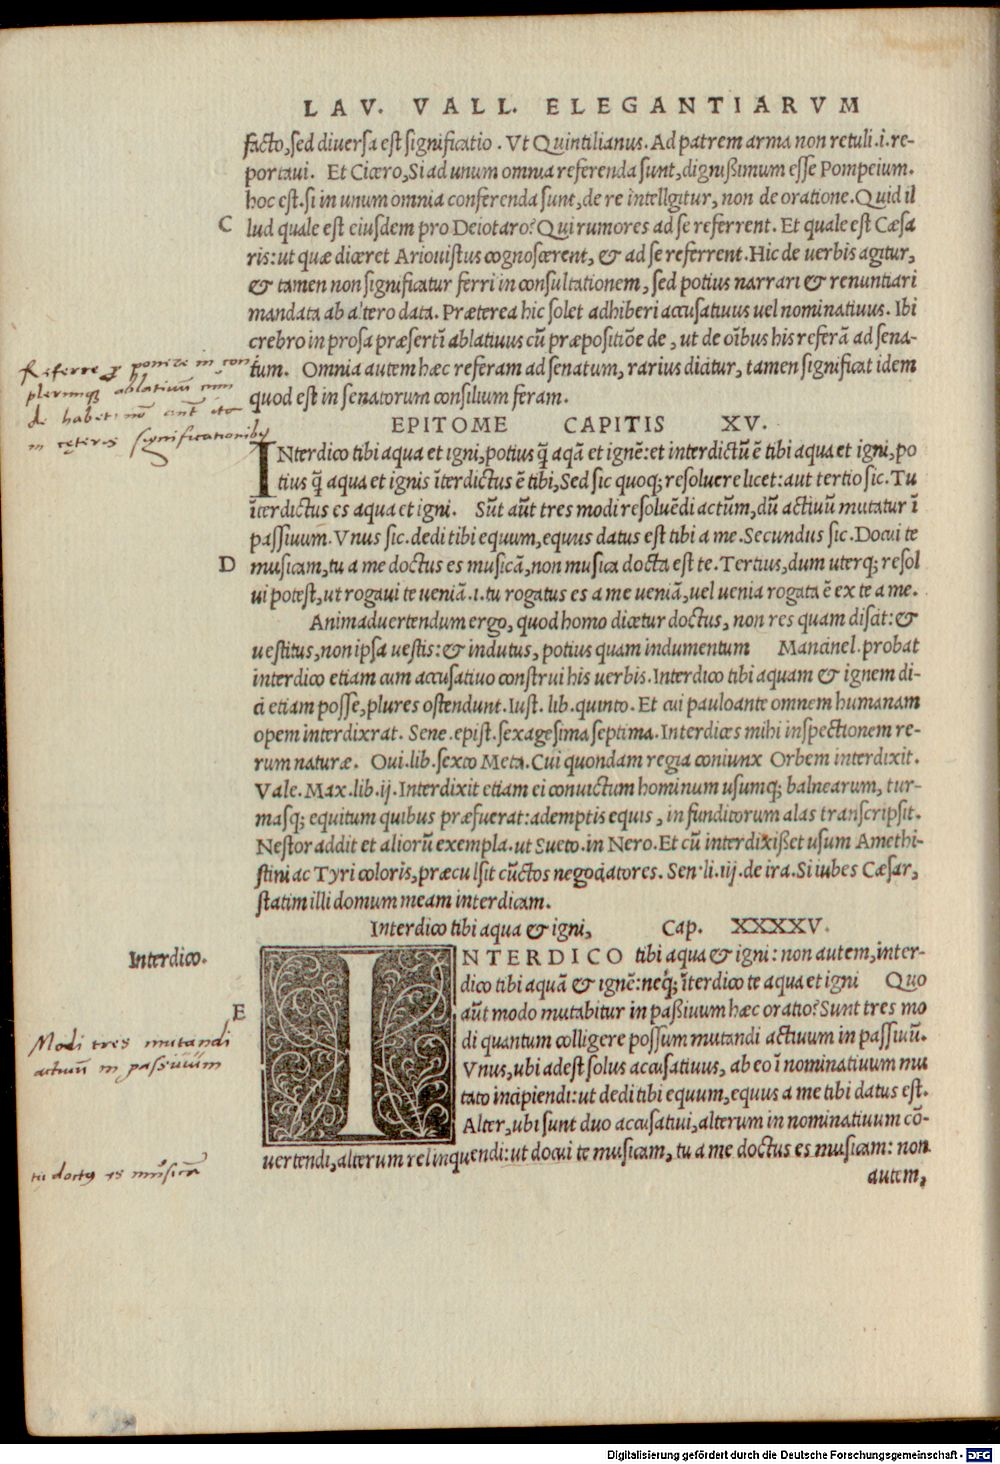 LAV. VALL. ELEGANTIARVM
facto, sed diuersa est significatio. Vt Quintilianus. Ad patrem arma non retuli .i. re-
portaui. Et Cicero, Si ad unum omnia referenda sunt, dignißimum esse Pompeium.
hoc est. si in unum omnia conferenda sunt, de re intelligitur, non de oratione. Quid il
C
lud quale est eiusdem pro Deiotaro? Qui rumores ad se referrent. Et quale est Cæsa
ris: ut quæ diceret Ariouistus cognoscerent, & ad se referrent. Hic de uerbis agitur,
& tamen non significatur ferri in consultationem, sed potius narrari & renuntiari
mandata ab altero data. Præterea hic solet adhiberi accusatiuus uel nominatiuus. Ibi
crebro in prosa præsertī ablatiuus cū præpositiōe de, ut de oībus his referā ad sena-
tum. Omnia autem hæc referam ad senatum, rarius dicitur, tamen significat idem
quod est in senatorum consilium feram.
Referre ponere in
plerumq; ablatiuū cum
de habet: nō
in cęteris significationibꝰ
EPITOME CAPITIS XV.
INterdico tibi aqua et igni, potius q̄ aqā et ignē: et interdictū ē tibi aqua et igni, po
tius q̄ aqua et ignis īterdictus ē tibi, Sed sic quoq; resoluere licet: aut tertio sic. Tu
īterdictus es aqua et igni. Sūt aūt tres modi resoluēdi actūm, dū actiuū mutatur ī
passiuum. Vnus sic. dedi tibi equum, equus datus est tibi a me. Secundus sic. Docui te
D
musicam, tu a me doctus es musicā, non musica docta est te. Tertius, dum uterq; resol
ui potest, ut rogaui te ueniā .i. tu rogatus es a me ueniā, uel uenia rogata ē ex te a me.
Animaduertendum ergo, quod homo dicetur doctus, non res quam discit: &
uestitus, non ipsa uestis: & indutus, potius quam indumentum Mancinel. probat
interdico etiam cum accusatiuo construi his uerbis. Interdico tibi aquam & ignem di-
ci etiam posse, plures ostendunt. Iust. lib. quinto. Et cui pauloante omnem humanam
opem interdixrat. Sene. epist. sexagesima septima. Interdices mihi inspectionem re-
rum naturæ. Oui. lib. sexto Meta. Cui quondam regia coniunx Orbem interdixit.
Vale. Max. lib. ij. Interdixit etiam ei conuictum hominum usumq; balnearum, tur-
masq; equitum quibus præfuerat: ademptis equis, in funditorum alas transcripsit.
Nestor addit et aliorū exempla. ut Sueto. in Nero. Et cū interdixißet usum Amethi-
stini ac Tyri coloris, præculsit cūctos negociatores. Sen. li. iij. de ira. Si iubes Cæsar,
statim illi domum meam interdicam.
Interdico tibi aqua & igni, Cap. XXXXV.
Interdico.
INTERDICO tibi aqua & igni: non autem, inter-
dico tibi aquā & ignē: neq́; īterdico te aqua et igni Quo
E
aūt modo mutabitur in paßiuum hæc oratio? Sunt tres mo
di quantum colligere possum mutandi actiuum in passiuū.
Vnus, ubi adest solus accusatiuus, ab eo ī nominatiuum mu
tato incipiendi: ut dedi tibi equum, equus a me tibi datus est.
Alter, ubi sunt duo accusatiui, alterum in nominatiuum cō-
uertendi, alterum relinquendi: ut docui te musicam, tu a me doctus es musicam: non
autem,
Modi tres mutandi
actiuū in passiuum
tu doctꝰ es musicā
Digitalisierung gefördert durch die Deutsche Forschungsgemeinschaft - DFG